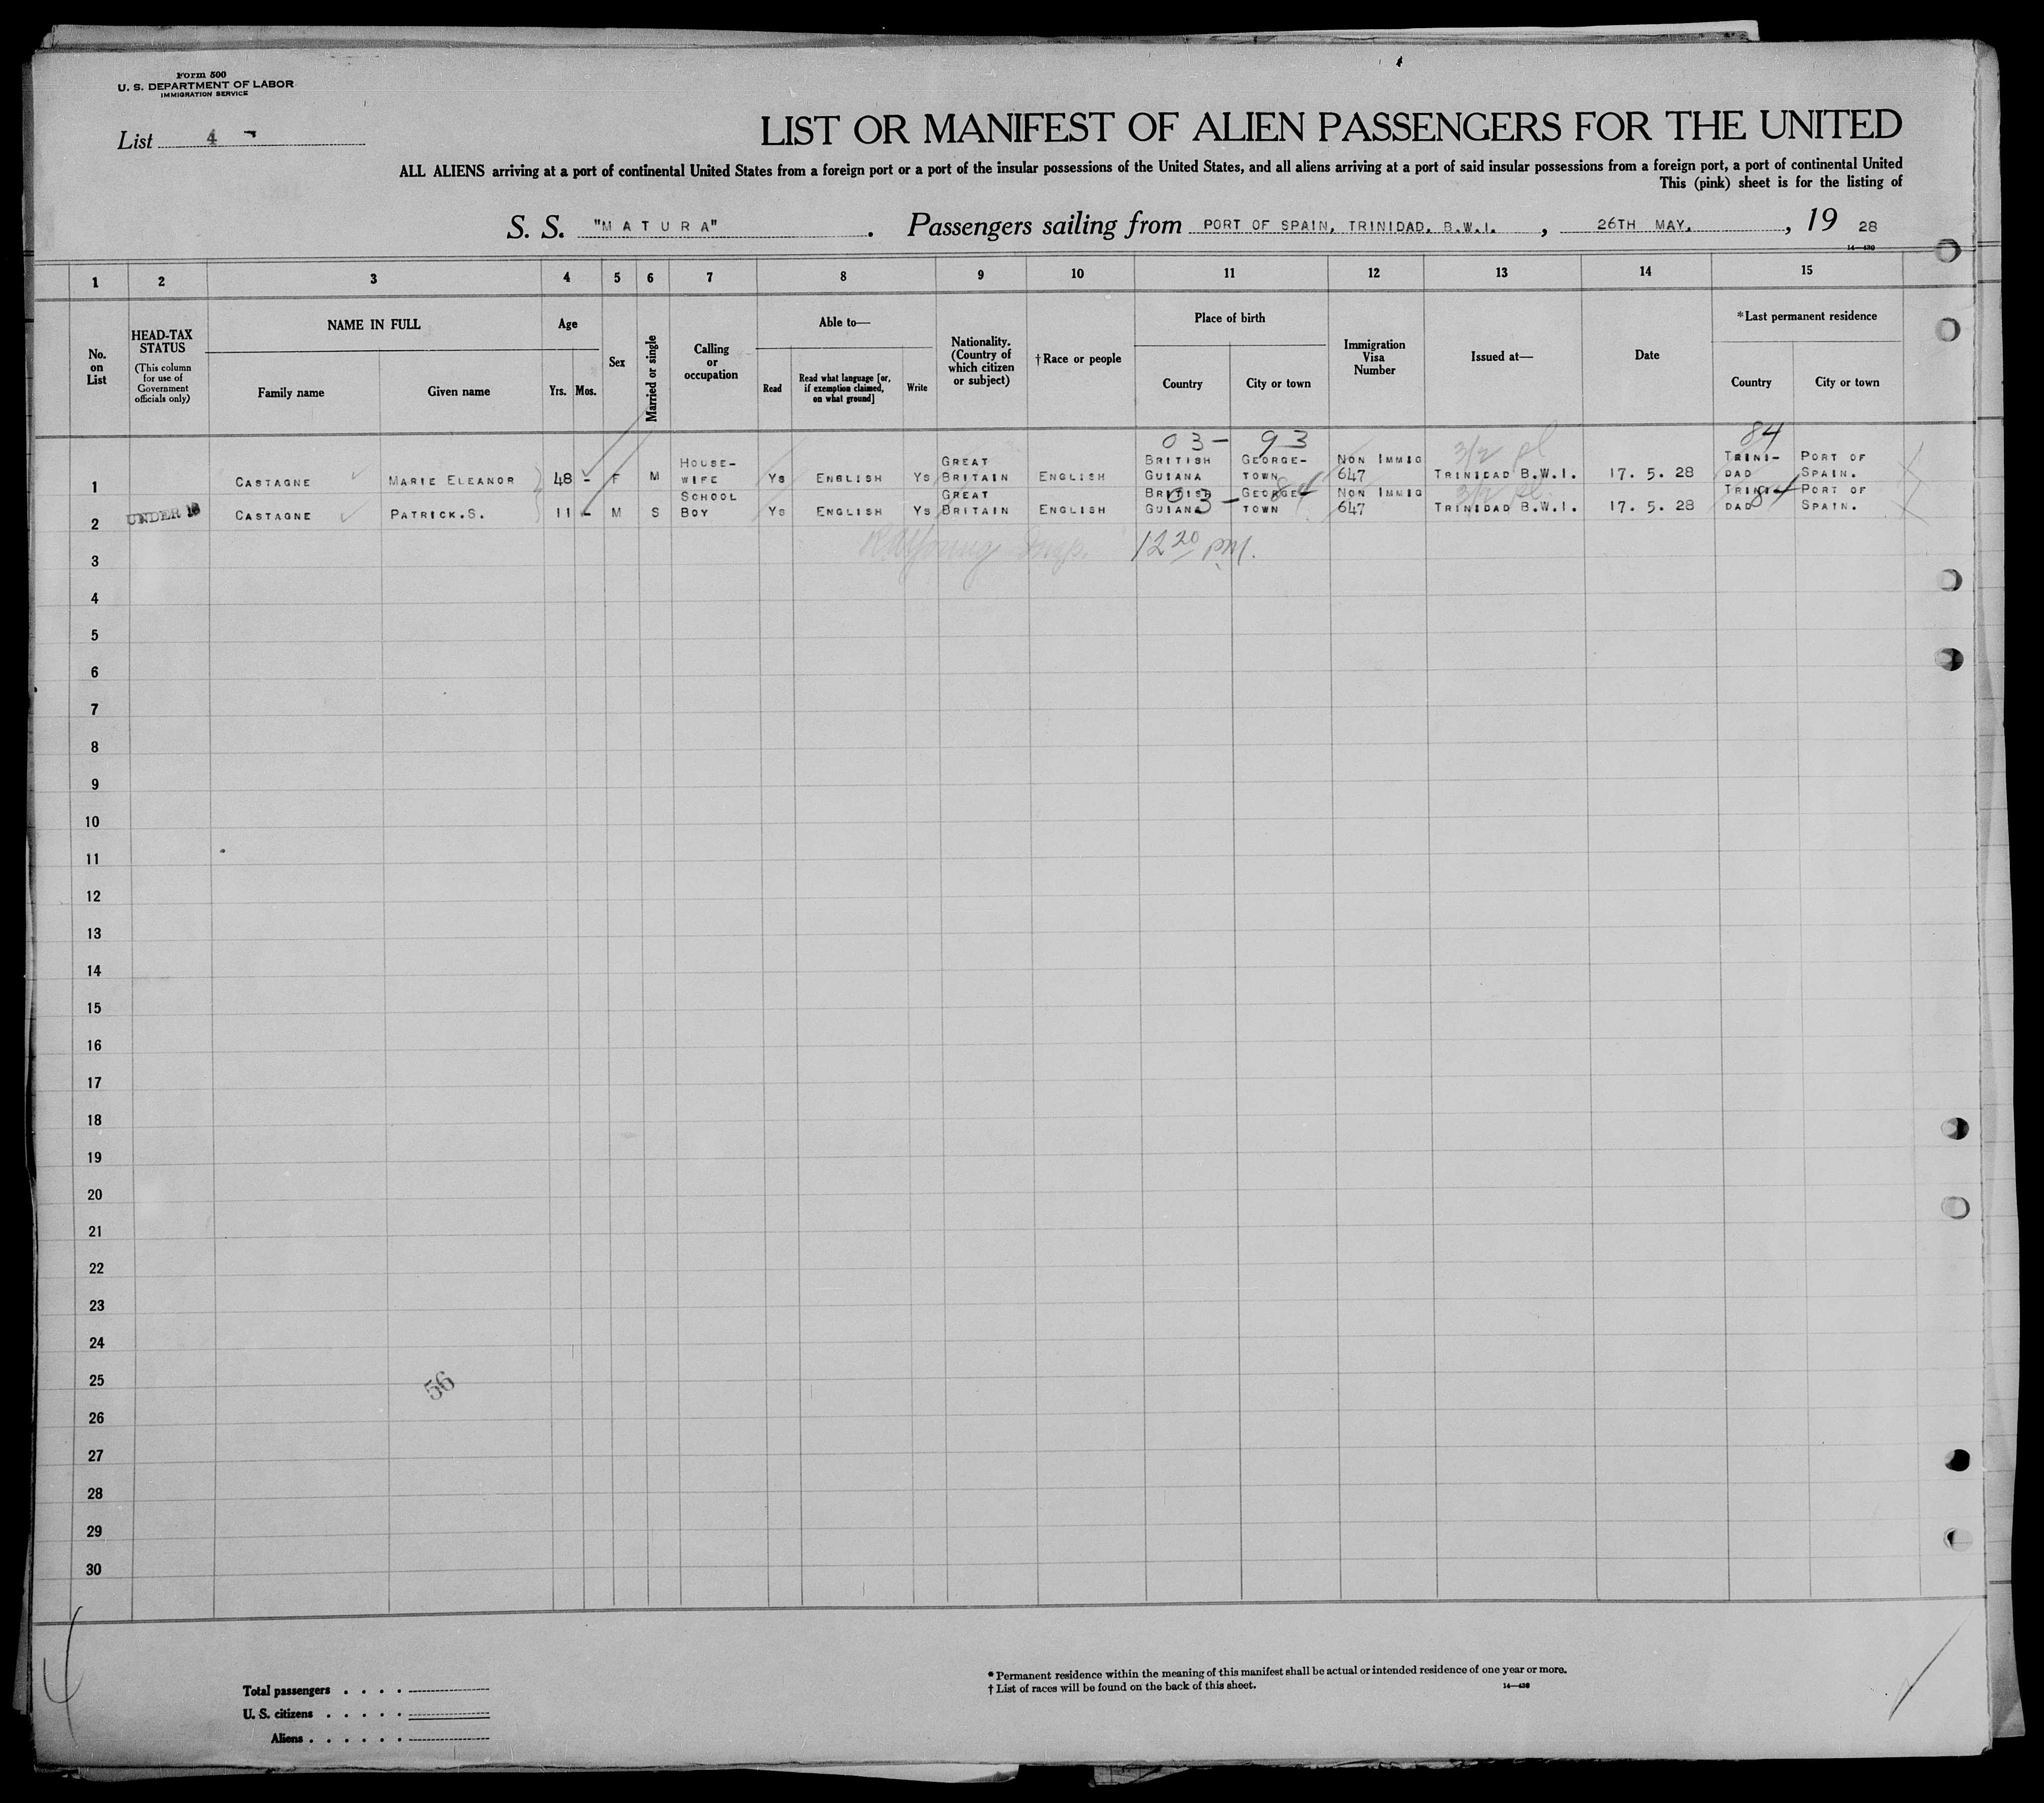 Form 500
U. S. DEPARTMENT OF LABOR
IMMIGRATION SERVICE
List 4
LIST OR MANIFEST OF ALIEN PASSENGERS FOR THE UNITED
ALL ALIENS arriving at a port of continental United States from a foreign port or a port of the insular possessions of the United States, and all aliens arriving at a port of said insular possessions from a foreign port, a port of continental United
This (pink) sheet is for the listing of
S. S. "MATURA". Passengers sailing from PORT OF SPAIN, TRINIDAD. B.W.I., 26TH MAY., 19 28
14—430
1 2 3 4 5 6 7 8 9 10 11 12 13 14 15
No. on List
HEAD-TAX STATUS
(This column for use of Government officials only)
NAME IN FULL
Family name
Given name
Age
Yrs. Mos.
Sex
Married or single
Calling or occupation
Able to—
Read
Read what language [or, if exemption claimed, on what ground]
Write
Nationality. (Country of which citizen or subject)
†Race or people
Place of birth
Country
City or town
Immigration Visa Number
Issued at—
Date
*Last permanent residence
Country
City or town
03— 93 3/2 pl 84
1 CASTAGNE MARIE ELEANOR 48 - F M HOUSE-WIFE YS ENGLISH YS GREAT BRITAIN ENGLISH BRITISH GUIANA GEORGE-TOWN NON IMMIG 647 TRINIDAD B.W.I. 17. 5. 28 TRINI-DAD PORT OF SPAIN.
03— 84 3/2 pl 84
2 UNDER 16 CASTAGNE PATRICK.S. 11 - M S SCHOOL BOY YS ENGLISH YS GREAT BRITAIN ENGLISH BRITISH GUIANA GEORGE-TOWN NON IMMIG 647 TRINIDAD B.W.I. 17. 5. 28 TRINI-DAD PORT OF SPAIN.
3 Insp. 12 20 PM.
4
5
6
7
8
9
10
11
12
13
14
15
16
17
18
19
20
21
22
23
24
25
56
26
27
28
29
30
Total passengers . . . .
U. S. citizens . . . . .
Aliens . . . . . .
* Permanent residence within the meaning of this manifest shall be actual or intended residence of one year or more.
† List of races will be found on the back of this sheet.
14—430